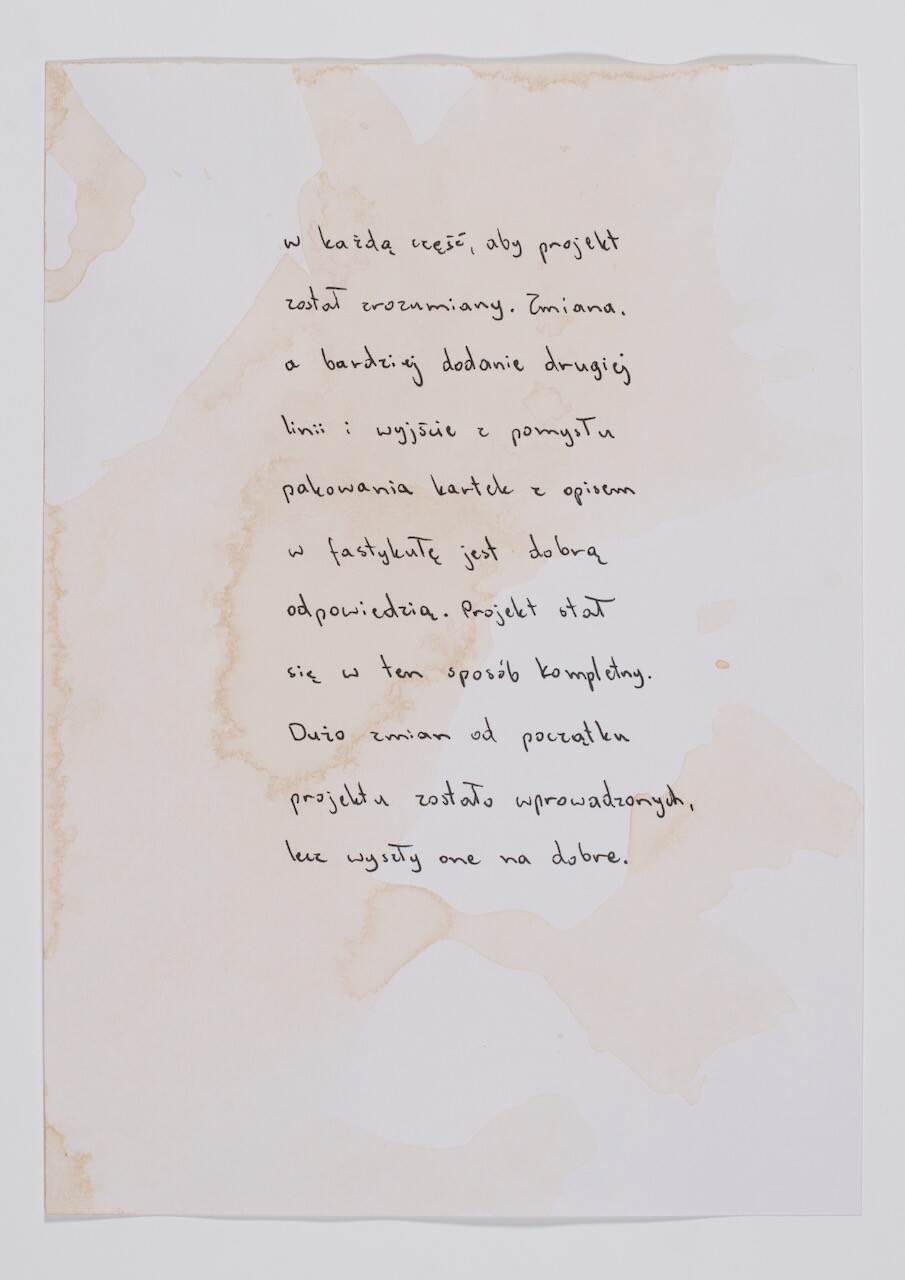 w każdą część, aby projekt
został zrozumiany. Zmiana,
a bardziej dodanie drugiej
linii i wyjście z pomysłu
pakowania kartek z opisem
w fastykułę jest dobrą
odpowiedzią. Projekt stał
się w ten sposób kompletny.
Dużo zmian od początku
projektu zostało wprowadzonych,
lecz wyszły one na dobre.